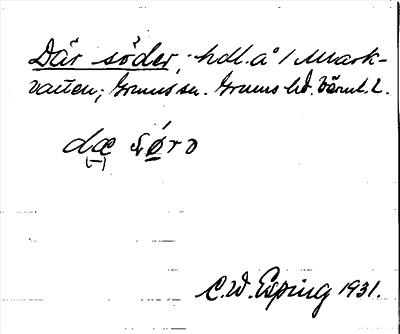 Där söder, hdl. å / Mark-
vatten, Grums sn. Grums hd. Värml. l.
dæ sǿ̱rə
C.W. Esping 1931.